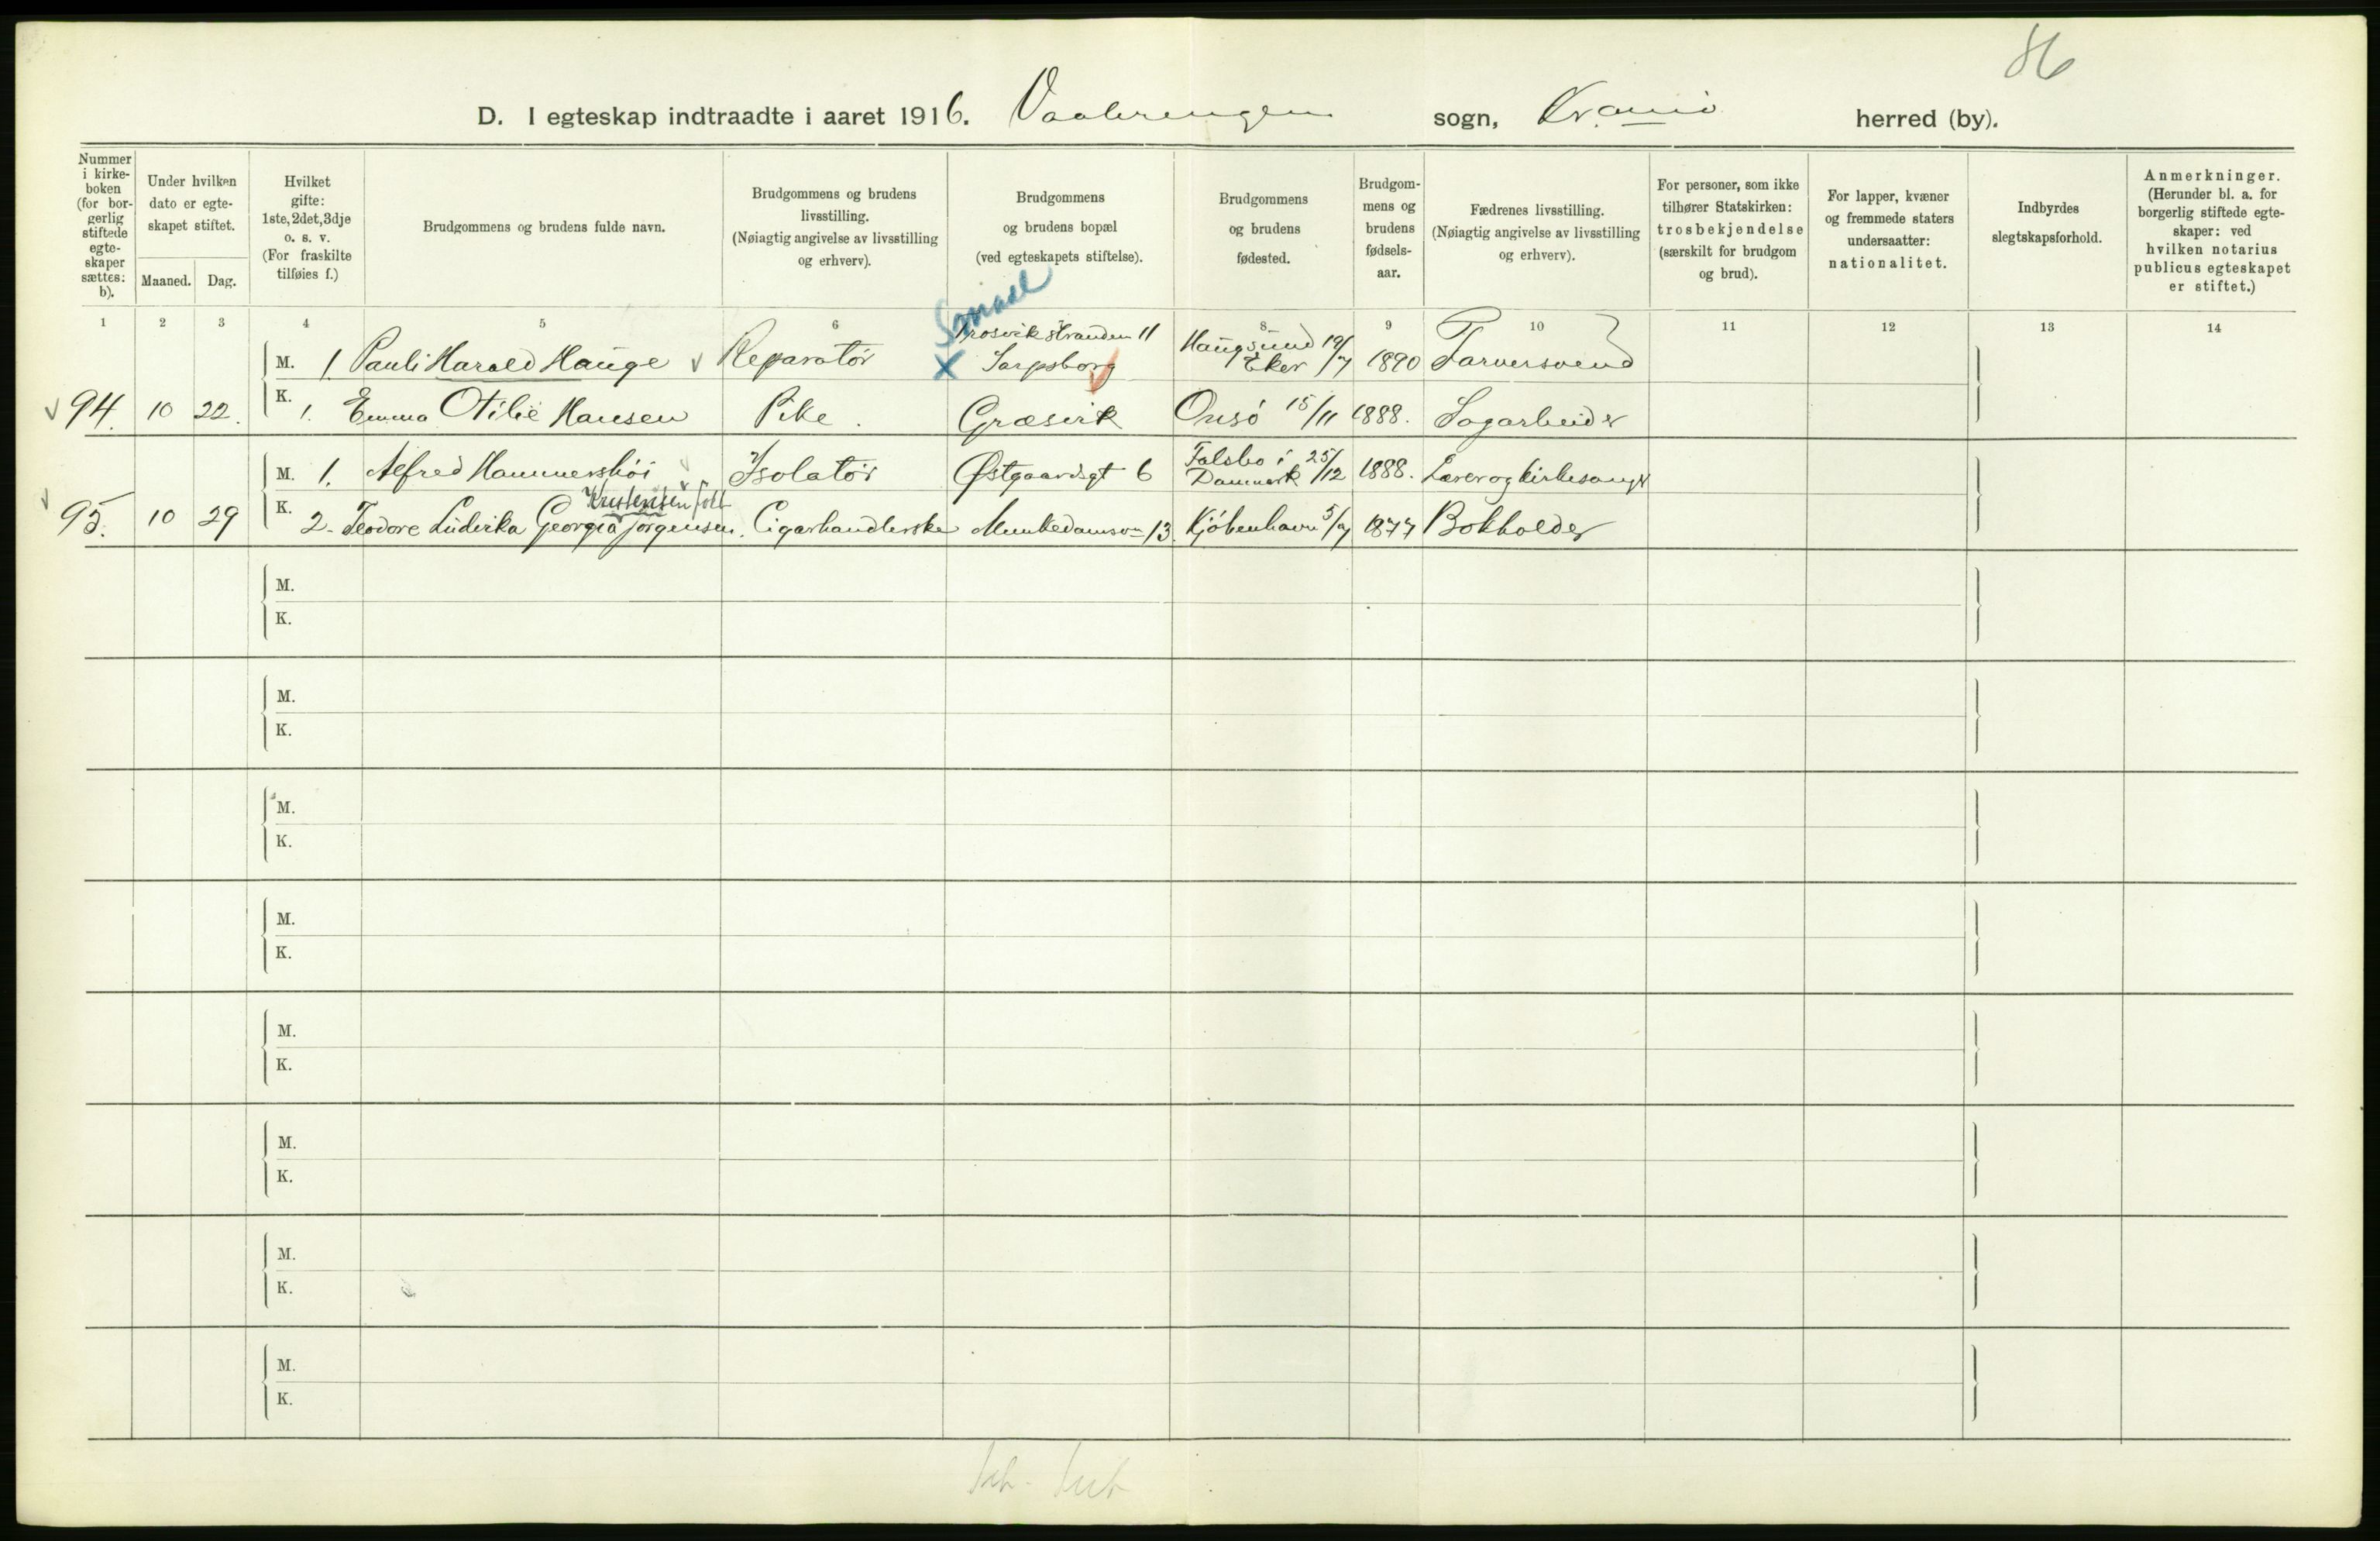 86
D. I egteskap indtraadte i aaret 1916. Vaalerengen sogn, Kr.ania herred (by).
Nummer
i kirke-
boken
(for bor-
gerlig
stiftede
egte-
skaper
sættes:
b).
Under hvilken
dato er egte-
skapet stiftet.
Maaned.
Dag.
Hvilket
gifte:
1ste, 2det, 3dje
o. s. v.
(For fraskilte
tilføies f.)
Brudgommens og brudens fulde navn.
Brudgommens og brudens
livsstilling.
(Nøiagtig angivelse av livsstilling
og erhverv).
Brudgommens
og brudens bopæl
(ved egteskapets stiftelse).
Brudgommens
og brudens
fødested.
Brudgom-
mens og
brudens
fødsels-
aar.
Fædrenes livsstilling.
(Nøiagtig angivelse av livsstilling
og erhverv).
For personer, som ikke
tilhører Statskirken:
trosbekjendelse
(særskilt for brudgom
og brud).
For lapper, kvæner
og fremmede staters
undersaatter:
nationalitet.
Indbyrdes
slegtskapsforhold.
Anmerkninger.
(Herunder bl. a. for
borgerlig stiftede egte-
skaper: ved
hvilken notarius
publicus egteskapet
er stiftet.)
1 2 3 4 5 6 8 9 10 11 12 13 14
Trosvikstranden 11
M. 1. Pauli Harald Hauge Reparatør X Sarpsborg Haugsund Eker 19/7 1890 Farversvend
94. 10 22. K. 1. Emma Otilie Hansen Pike. Græsvik Onsö 15/11 1888. Sagarbeider
M. 1. Alfred Hammershöi Isolatör Østgaardsgt 6 Falsbo i Danmark 25/12 1888. Lærer og kirkesanger
Kristensen født
95. 10 29 K. 2. Teodore Ludvika Georgia Jörgensen. Cigarhandlerske Munkedamsvn 13. Kjöbenhavn 5/7 1877 Bokholder
M.
K.
M.
K.
M.
K.
M.
K.
M.
K.
M.
K.
M.
K.
M.
K.